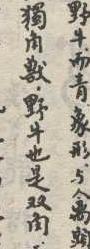 野牛而青象形与禽頭
獨角獸野牛也是双角